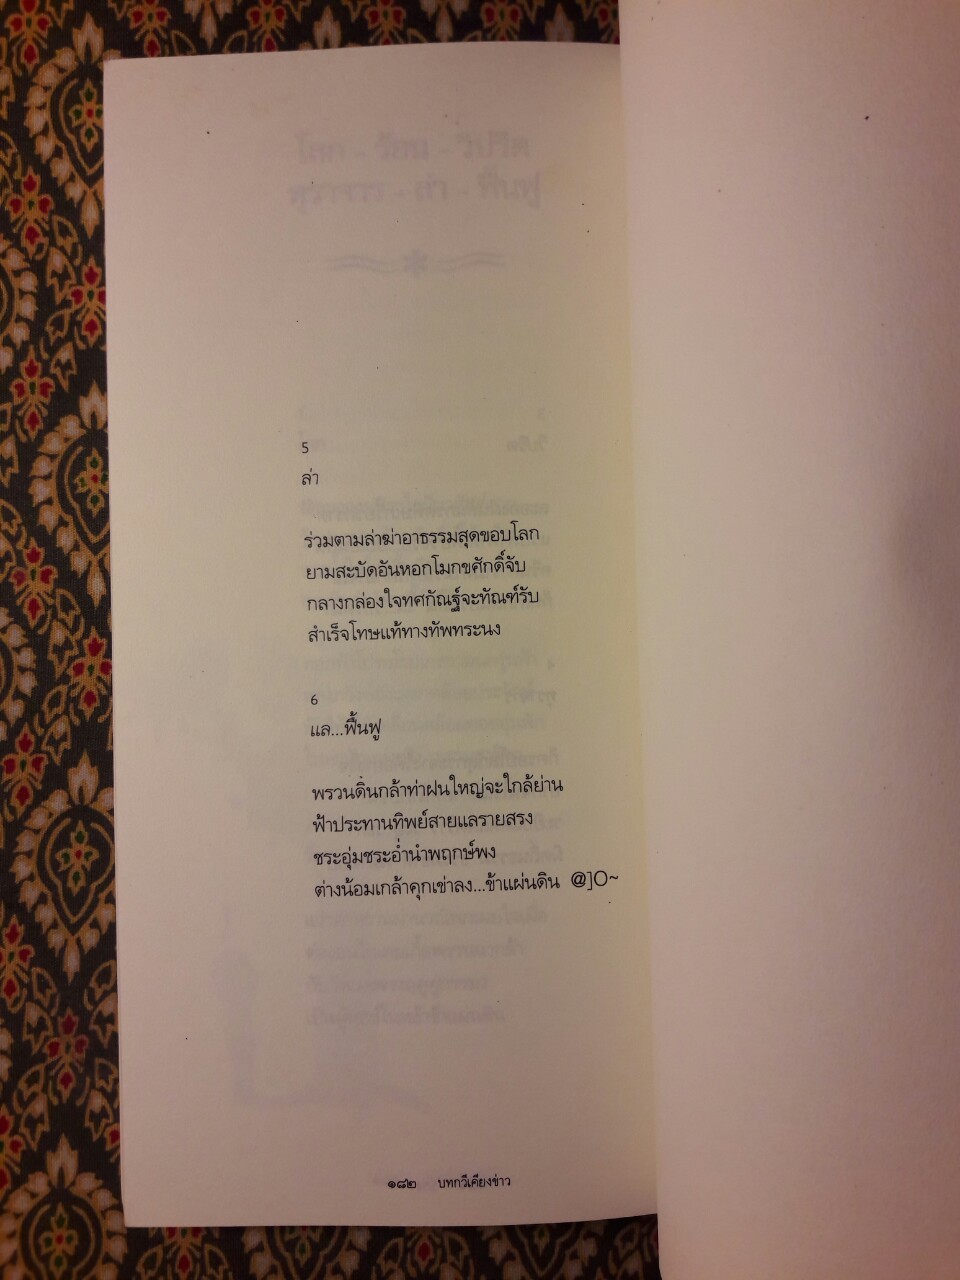 5
ล่า
ร่วมตามล่าฆ่าอาธรรมสุดขอบโลก
ยามสะบัดอันหอกโมกขศักดิ์จับ
กลางกล่องใจทศกัณฐ์จะทัณฑ์รับ
สำเร็จโทษแท้ทางทัพทระนง
6
แล...ฟื้นฟู
พรวนดินกล้าท่าฝนใหญ่จะใกล้ย่าน
ฟ้าประทานทิพย์สายแลรายสรง
ชระอุ่มชระอ่ำนำพฤกษ์พง
ต่างน้อมเกล้าคุกเข่าลง...ข้าแผ่นดิน @]O~
๑๘๒ บทกวีเคียงข่าว